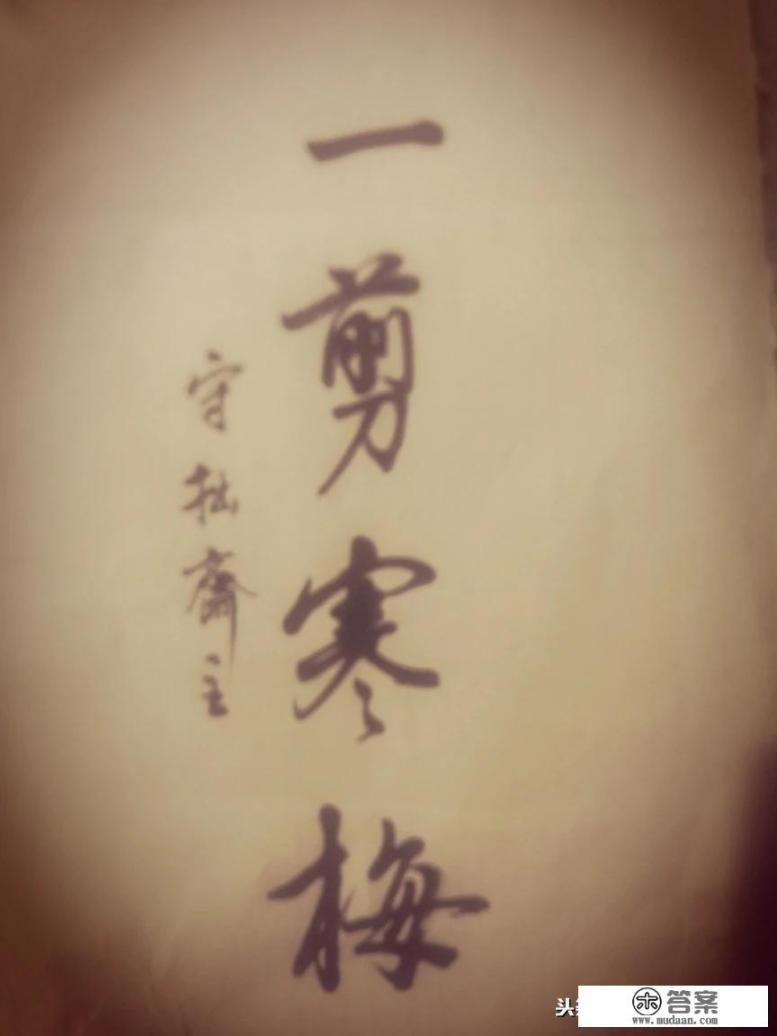 一剪寒梅
守拙齋主
头
答案
www.mudaan.com